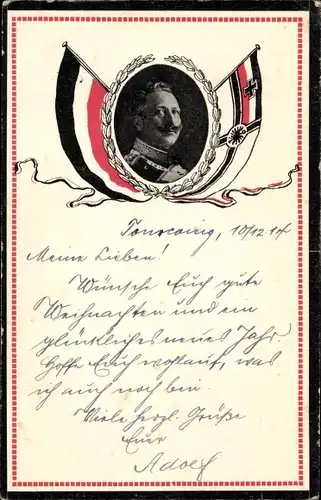 Tourcoing, 10/12.14
Meine Lieben!
Wünsche Euch gute
Weihnachten und ein
glückliches neues Jahr
Hoffe Euch wohlauf, was
ich auch noch bin.
Viele herzl. Grüße
Euer
Adolf